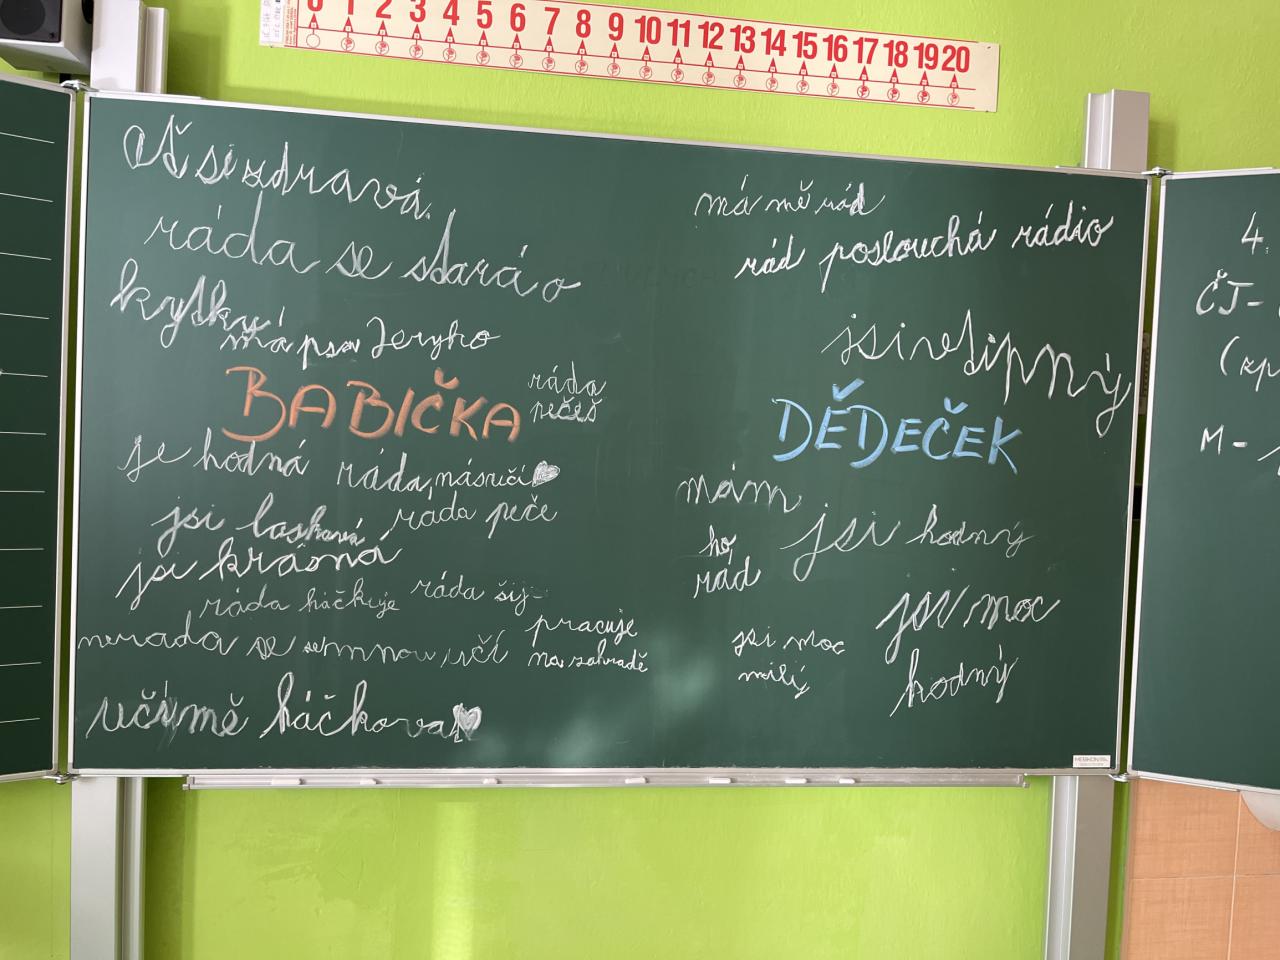 0 1 2 3 4 5 6 7 8 9 10 11 12 13 14 15 16 17 18 19 20
Ať si zdravá
ráda se stará o
kytky
má psa Jeryho
BABIČKA
ráda
pečeš
je hodná
ráda, nás učí
jsi laskavá
ráda peče
jsi krásná
ráda háčkuje
ráda šij
nerada se semnou učí
pracuje
na zahradě
učí mě háčkovat
má mě rád
rád poslouchá rádio
jsi vtipný
DĚDEČEK
mám
ho
rád
jsi hodný
jsi moc
hodný
jsi moc
milý
4.
ČJ-
M-